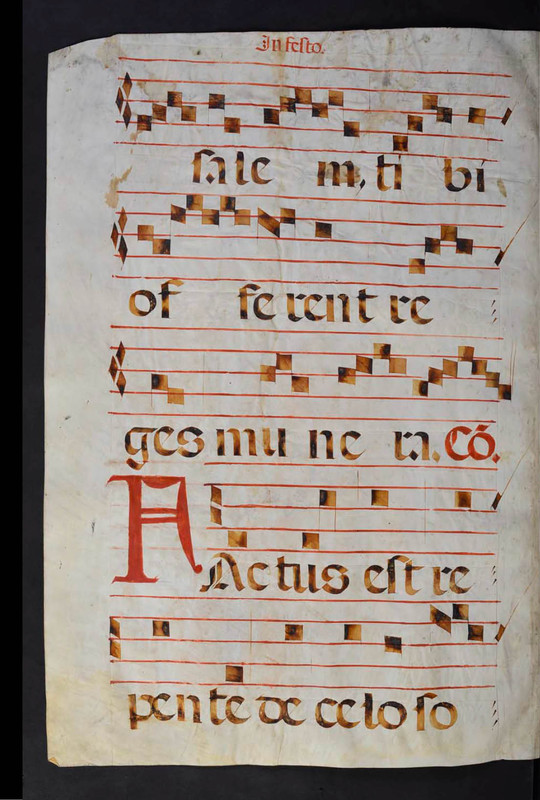 In festo.
sale m, ti bi
of ferent re
ges mu ne ra. Cō.
FActus est re
pente de celo so